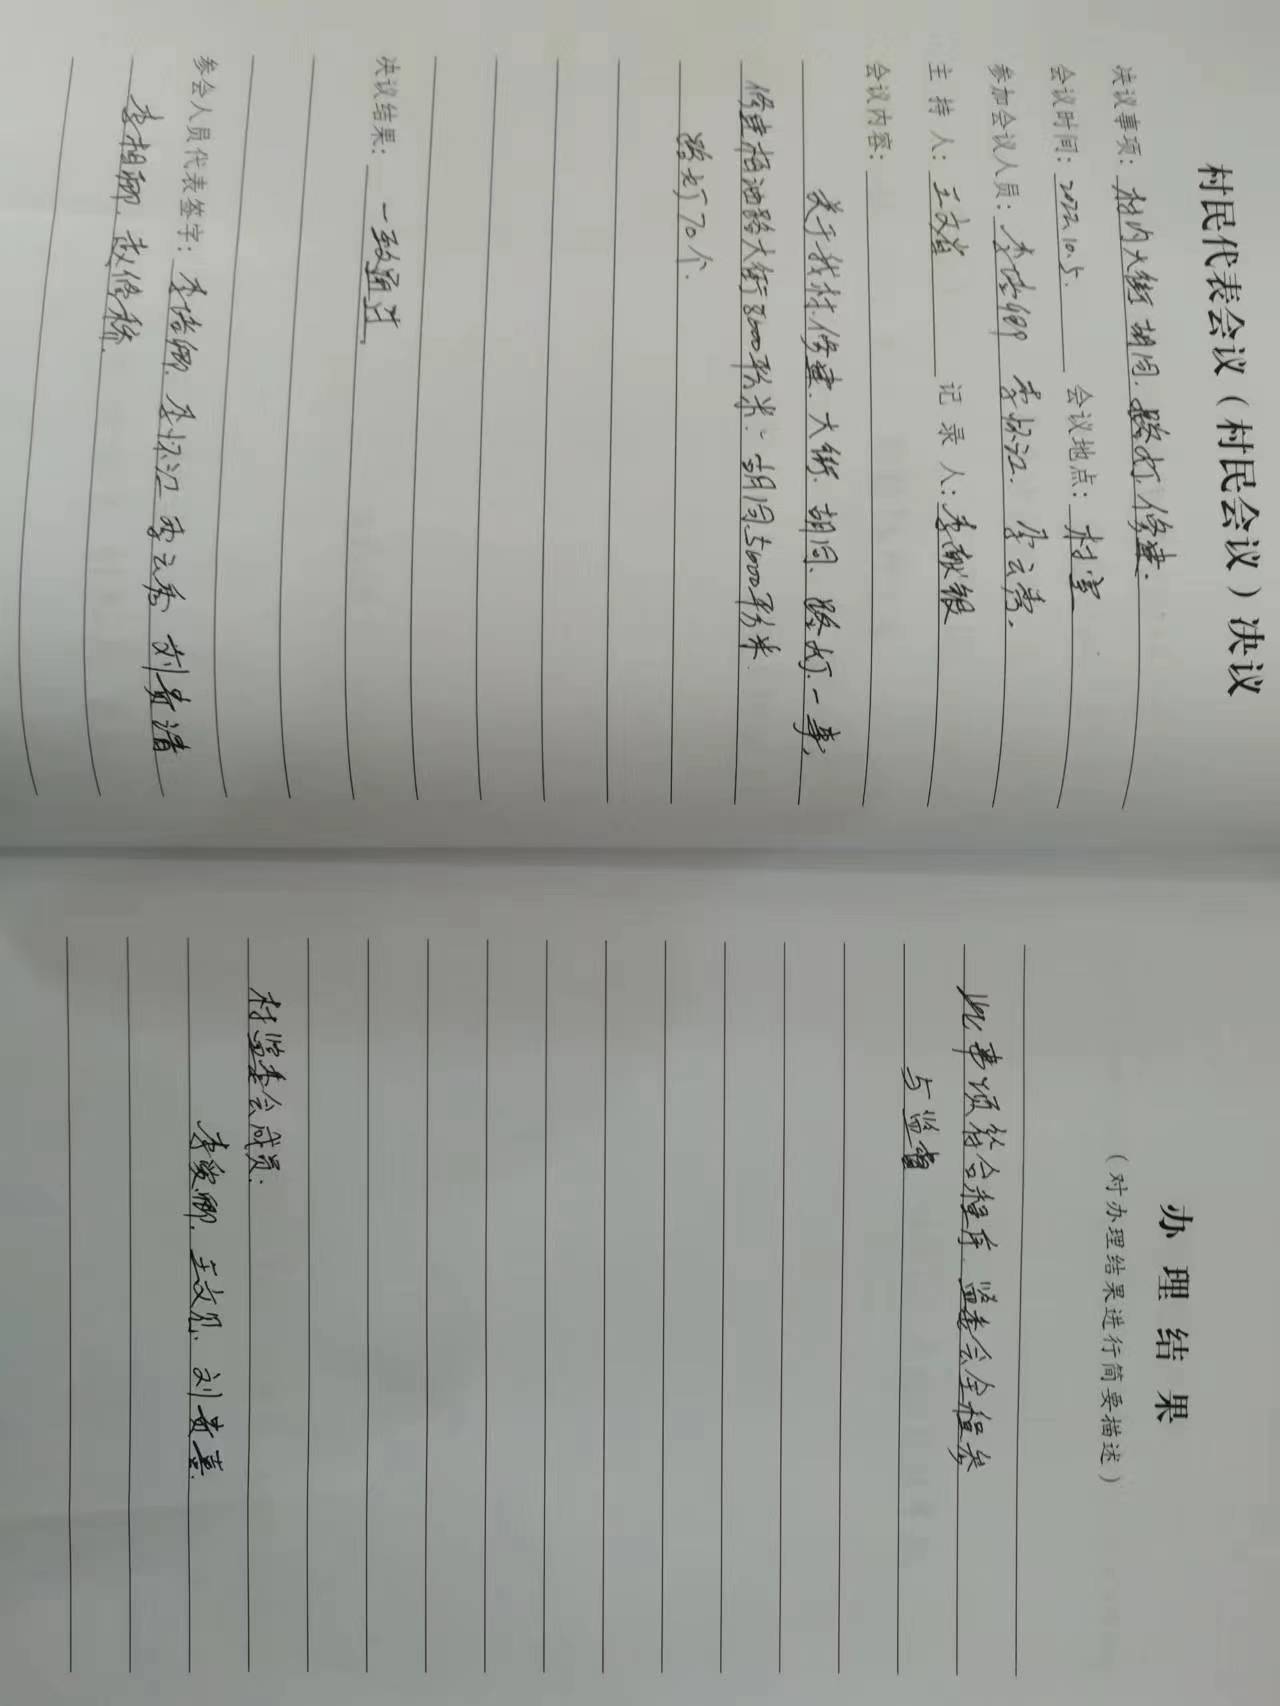 村民代表会议（村民会议）决议
决议事项：村内大街胡同.路灯.修建.
会议时间：2022.10.5. 会议地点：村室
参加会议人员：李怀江. 李云秀.
主持人：王文省 记录人：李献银
会议内容：
关于我村.修建.大街.胡同、路灯.一事，
修建柏油路大街8000平方米.胡同5600平方米
路灯70个.
决议结果：一致通过.
参会人员代表签字：李怀江 李云秀 刘贵清
李相卿.赵修
办理结果
（对办理结果进行简要描述）
此事项符合程序.监委会全程参
与监督
村监委会成员：
李爱卿.王文兄.刘贵喜.